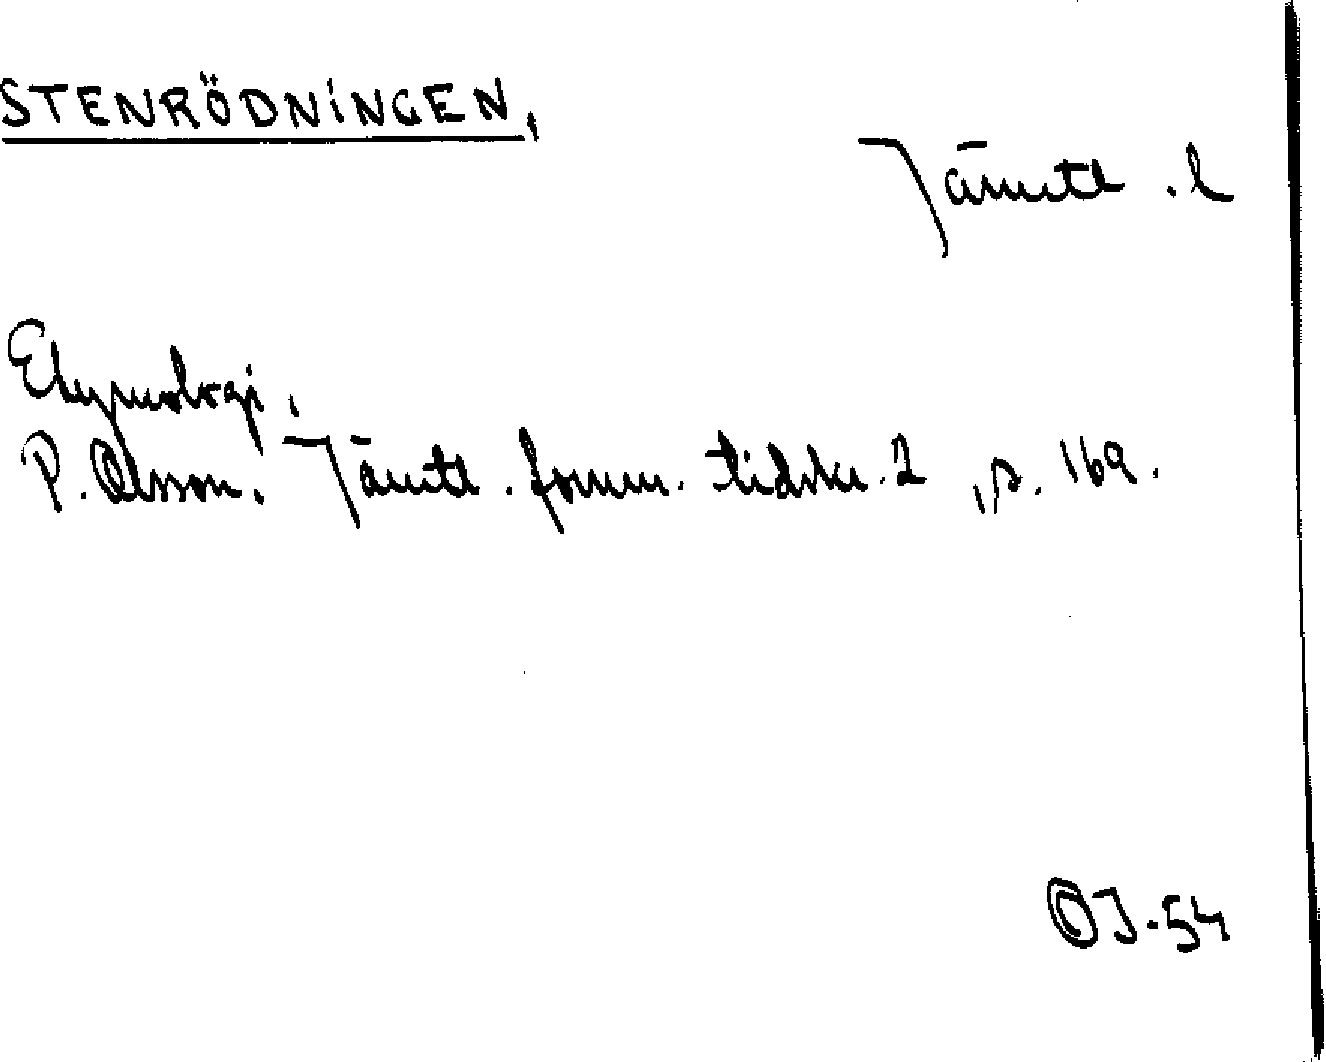 STENRÖDNINGEN,
Jämtl. l
Etymologi,
P. Olsson. Jämtl. fornm. tidskr. 2, s. 169.
OJ-54